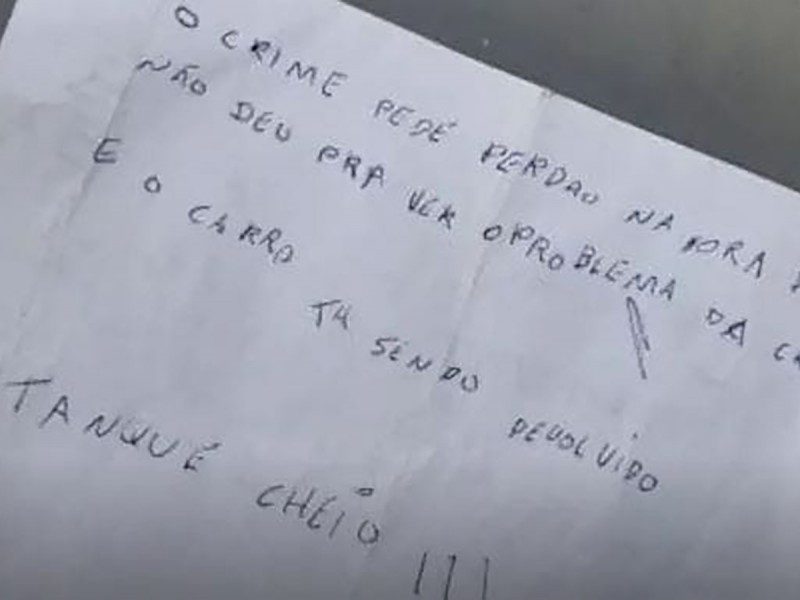 O CRIME PEDE PERDÃO NA HORA
NÃO DEU PRA VER O PROBLEMA DA
E O CARRO TÁ SENDO DEVOLVIDO
TANQUE CHEIO !!!